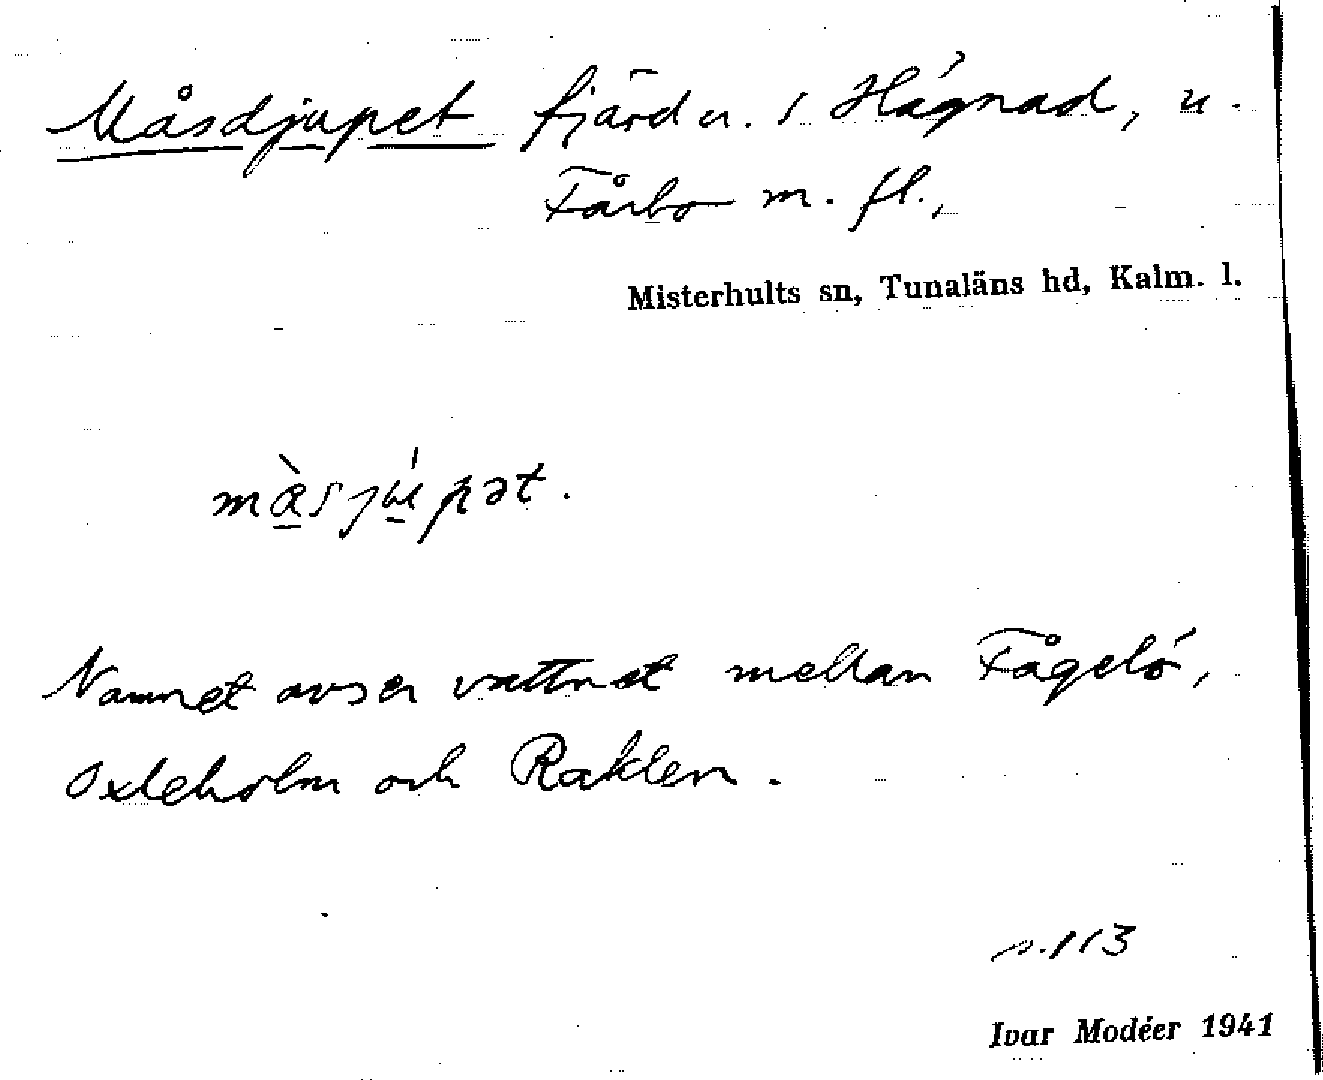 Måsdjupet fjärd u. / Hägnad, u.
Fårbo m. fl.,
Misterhults sn, Tunaläns hd, Kalm. l.
mɑ̀sjú̱pət.
Namnet avser vattnet mellan Fågelö,
Oxleholm och Raklen.
s. 113
Ivar Modéer 1941